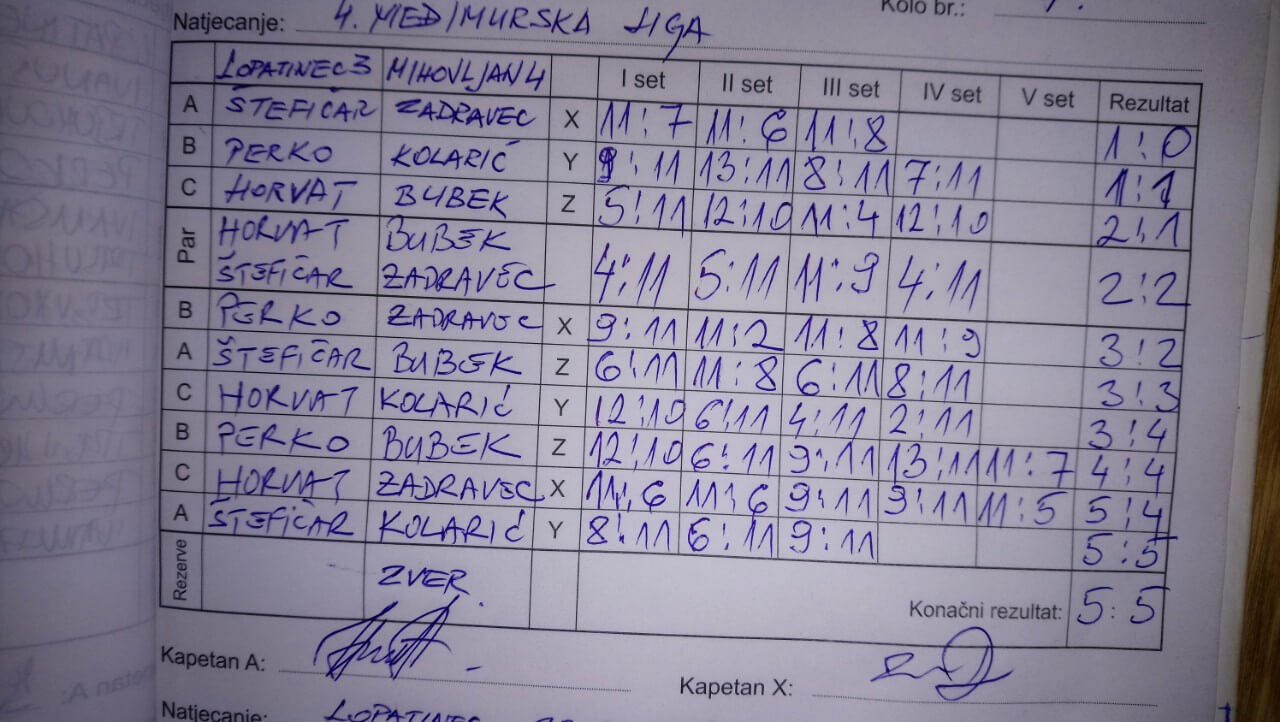 Natjecanje: 4. MEĐIMURSKA LIGA Kolo br.:
LOPATINEC 3 MIHOVLJAN 4 I set II set III set IV set V set Rezultat
A ŠTEFIČAR ZADRAVEC X 11:7 11:6 11:8 1:0
B PERKO KOLARIĆ Y 9:11 13:11 8:11 7:11 1:1
C HORVAT BUBEK Z 5:11 12:10 11:4 12:10 2:1
Par HORVAT BUBEK
ŠTEFIČAR ZADRAVEC 4:11 5:11 11:9 4:11 2:2
B PERKO ZADRAVEC X 9:11 11:2 11:8 11:9 3:2
A ŠTEFIČAR BUBEK Z 6:11 11:8 6:11 8:11 3:3
C HORVAT KOLARIĆ Y 12:10 6:11 4:11 2:11 3:4
B PERKO BUBEK Z 12:10 6:11 9:11 13:11 11:7 4:4
C HORVAT ZADRAVEC X 11:6 11:6 9:11 9:11 11:5 5:4
A ŠTEFIČAR KOLARIĆ Y 8:11 6:11 9:11 5:5
Rezerve ZVER. Konačni rezultat: 5:5
Kapetan A: Kapetan X:
Natjecanje: LOPATINEC